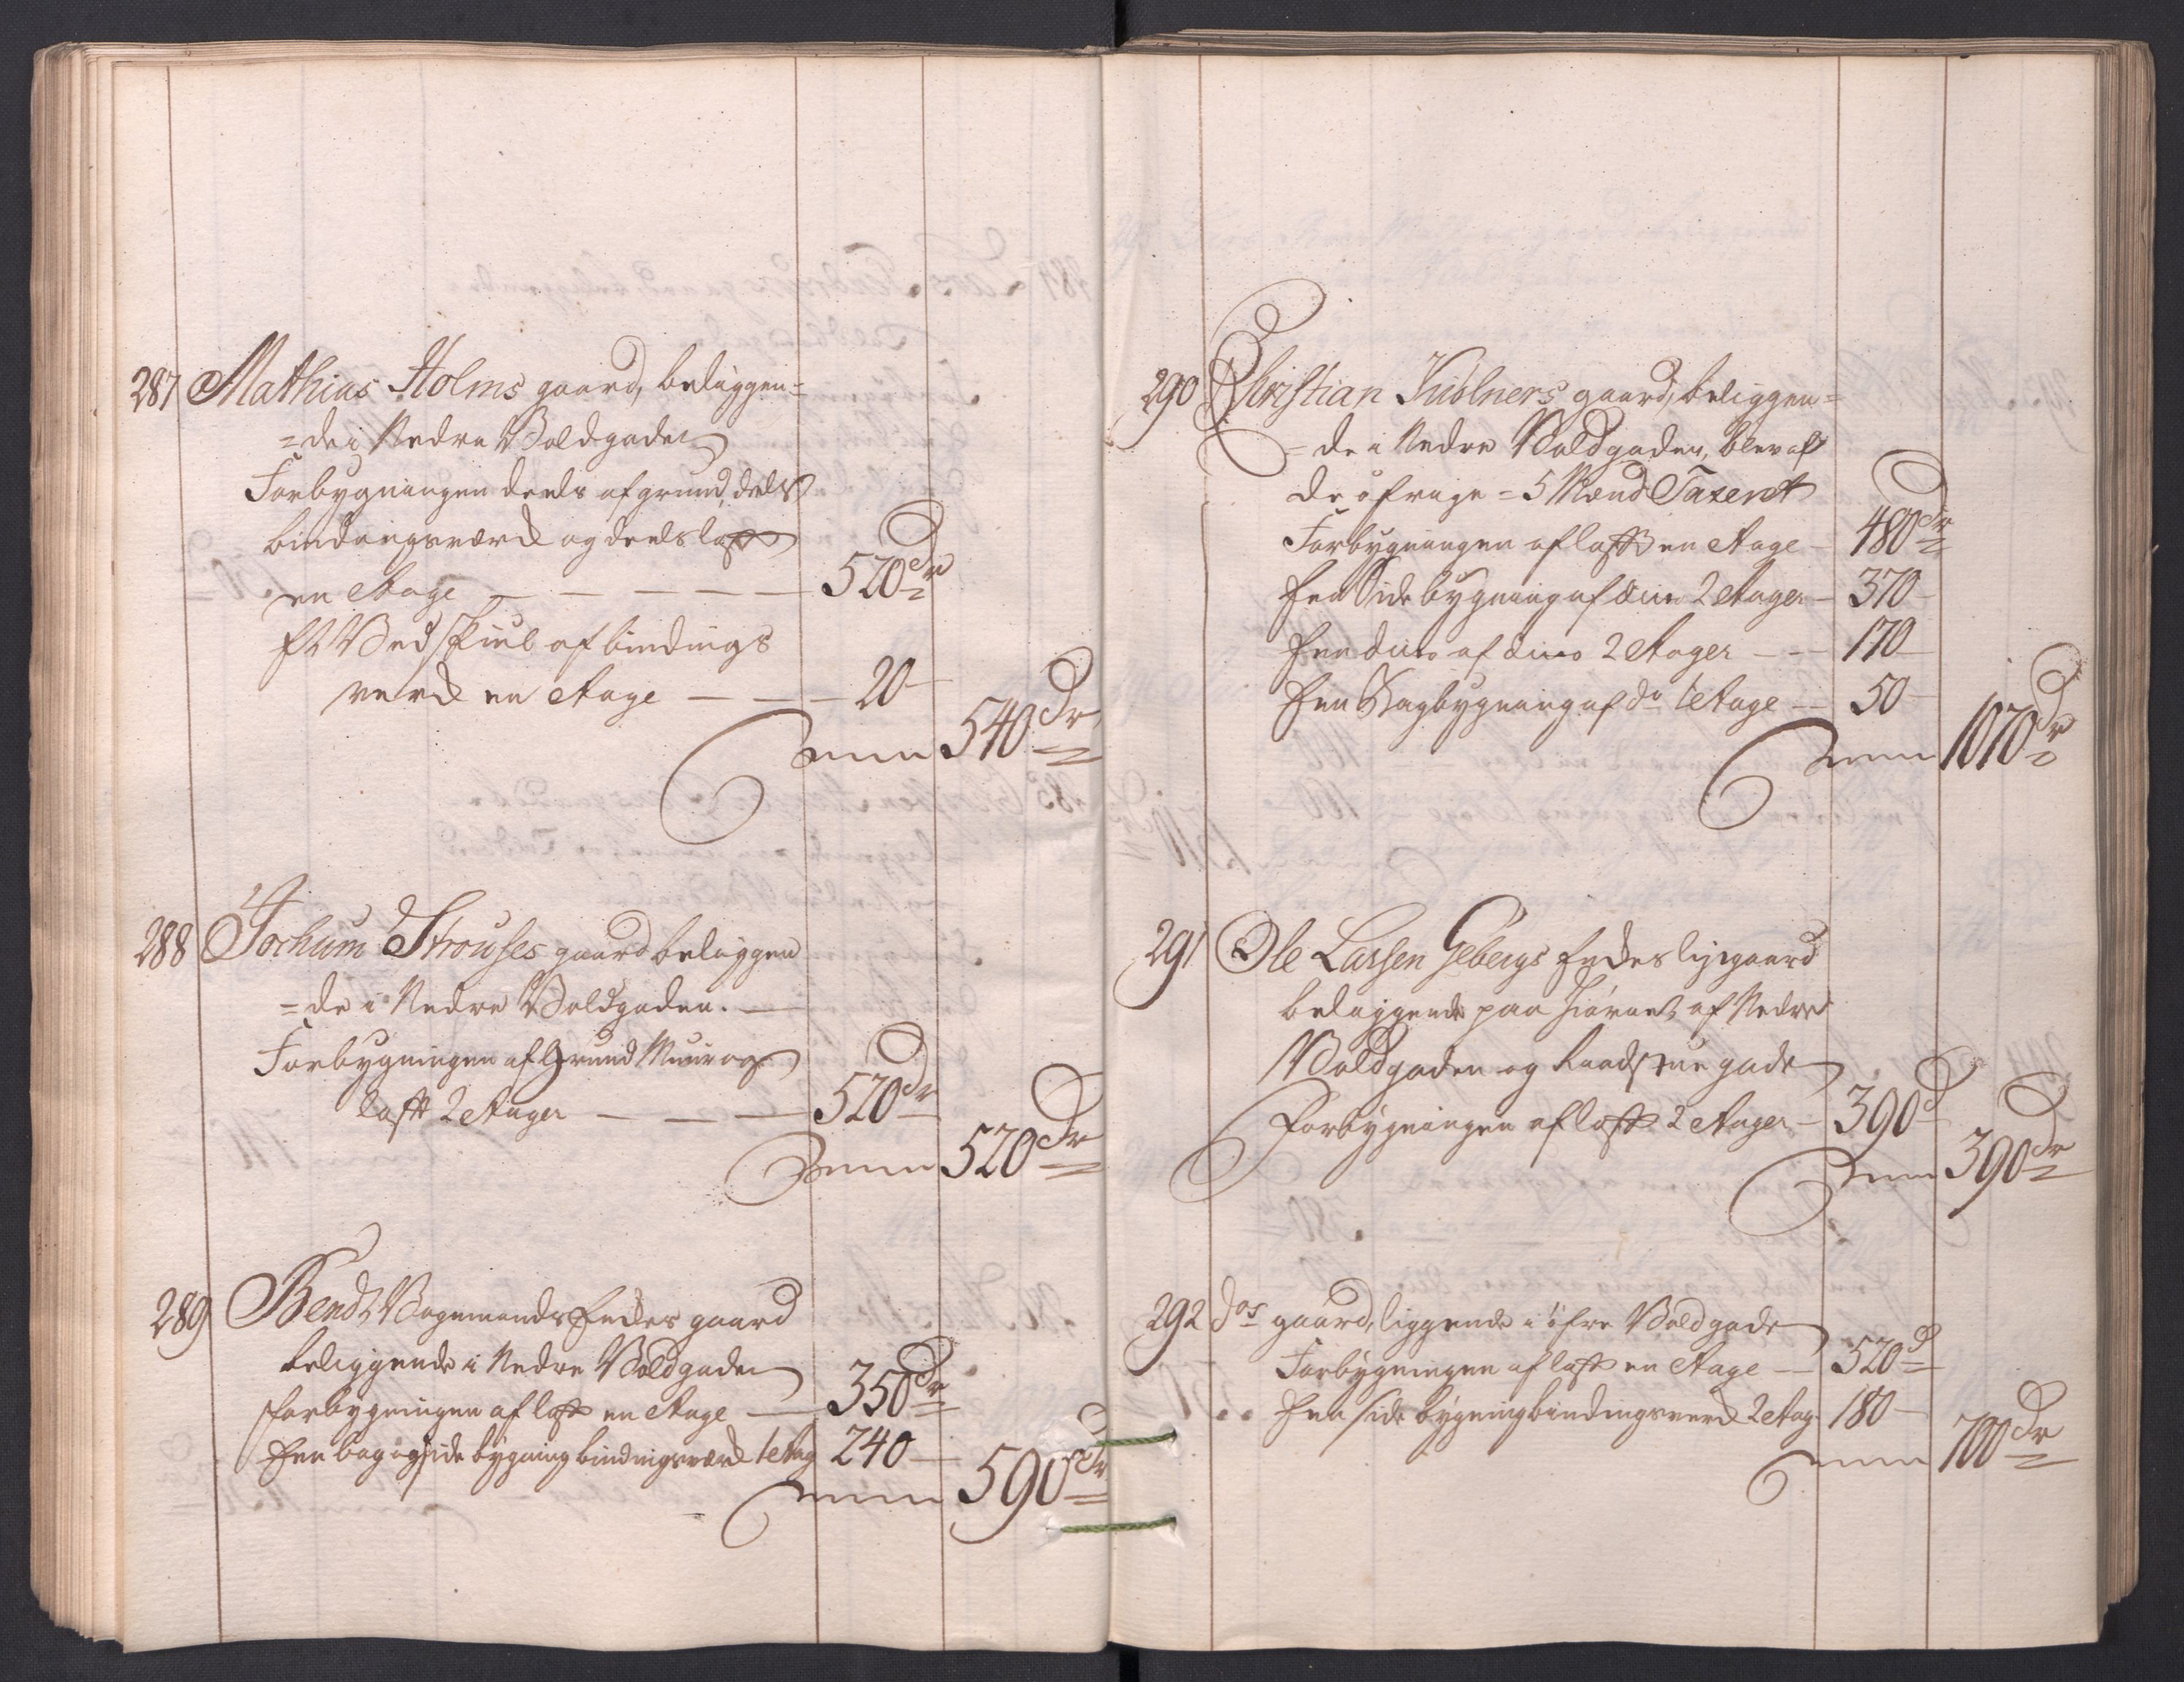 287 Mathias Holms gaard, beliggen=
=de i Nedre Voldgaden
Forbygningen deels af grund, deels
bindingsværck og deels laft
en Etage — — — — — 520 Dr
Et Vedskiul af bindings
verck en Etage — — — 20 —
Summa 540 Dr
288 Jochum Strouses gaard beliggen
=de i Nedre Voldgaden. —
Forbygningen af Grund Muur og
laft 2 Etager — — — 520 Dr
Summa 520 Dr
289 Bendt Vognmands Enckes gaard
beliggende i Nedre Voldgaden
Forbygningen af laft en Etage — 350 Dr
Een bag og side bygning bindingsværck 1 Etag 240 —
Summa 590 Dr
290 Christian gaard, beliggen=
=de i Nedre Voldgaden, blev af
de øfrige = 5 Mænd Taxert
Forbygningen af laft en Etage — 480 Dr
Een Sidebygning af dito 2 Etager — 370 —
Een dito af dito 2 Etager — — 170 —
Een Bagbygning af do 1 Etage — 50 —
Summa 1070 Dr
291 Ole Larsen Gebergs gaard
beliggende paa Hiørnet af Nedre
Voldgaden og Raadstue gade
Forbygningen af laft 2 Etager — 390 d
Summa 390 Dr
292 dos gaard, liggende i Øfre Voldgade
Forbygningen af laft en Etage — 520 d
Een side bygning bindingsverck 2 Etag 180 —
Summa 700 Dr